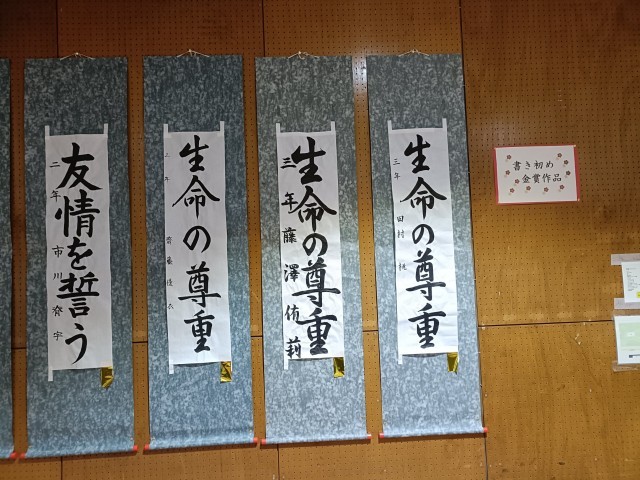 書き初め
金賞作品
生命の尊重
三年 田村 桃
生命の尊重
三年 藤澤侑莉
生命の尊重
三年 齋藤優衣
友情を誓う
二年 市川